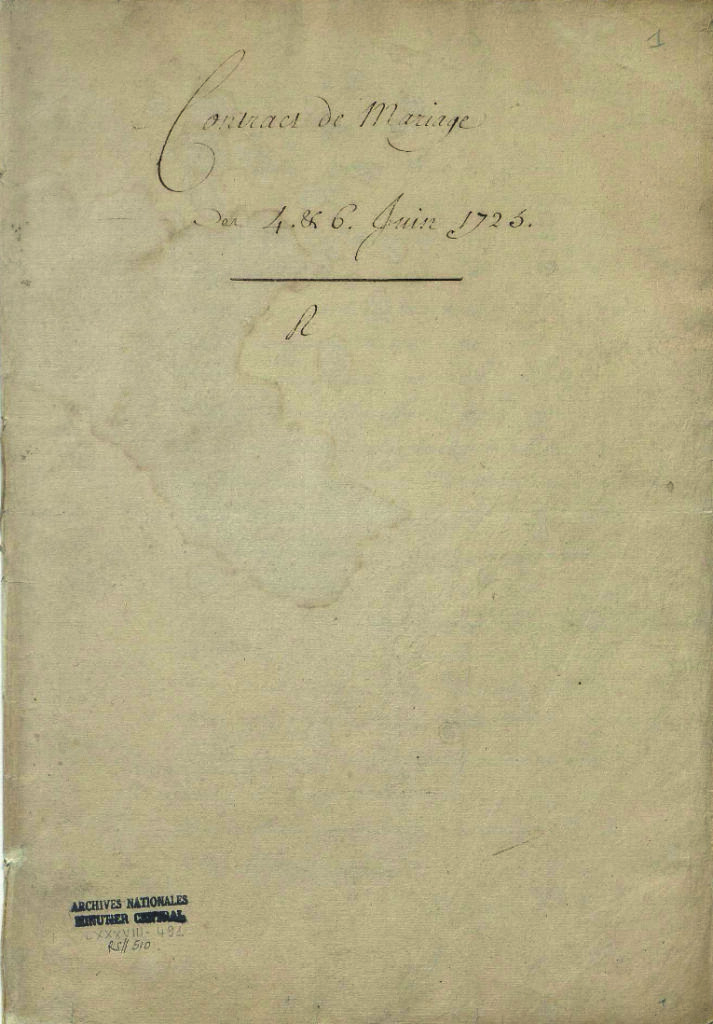 1
Contract de Mariage
Des 4. & 6. Juin 1725.
R
ARCHIVES NATIONALES
MINUTIER CENTRAL
RS// 510
1